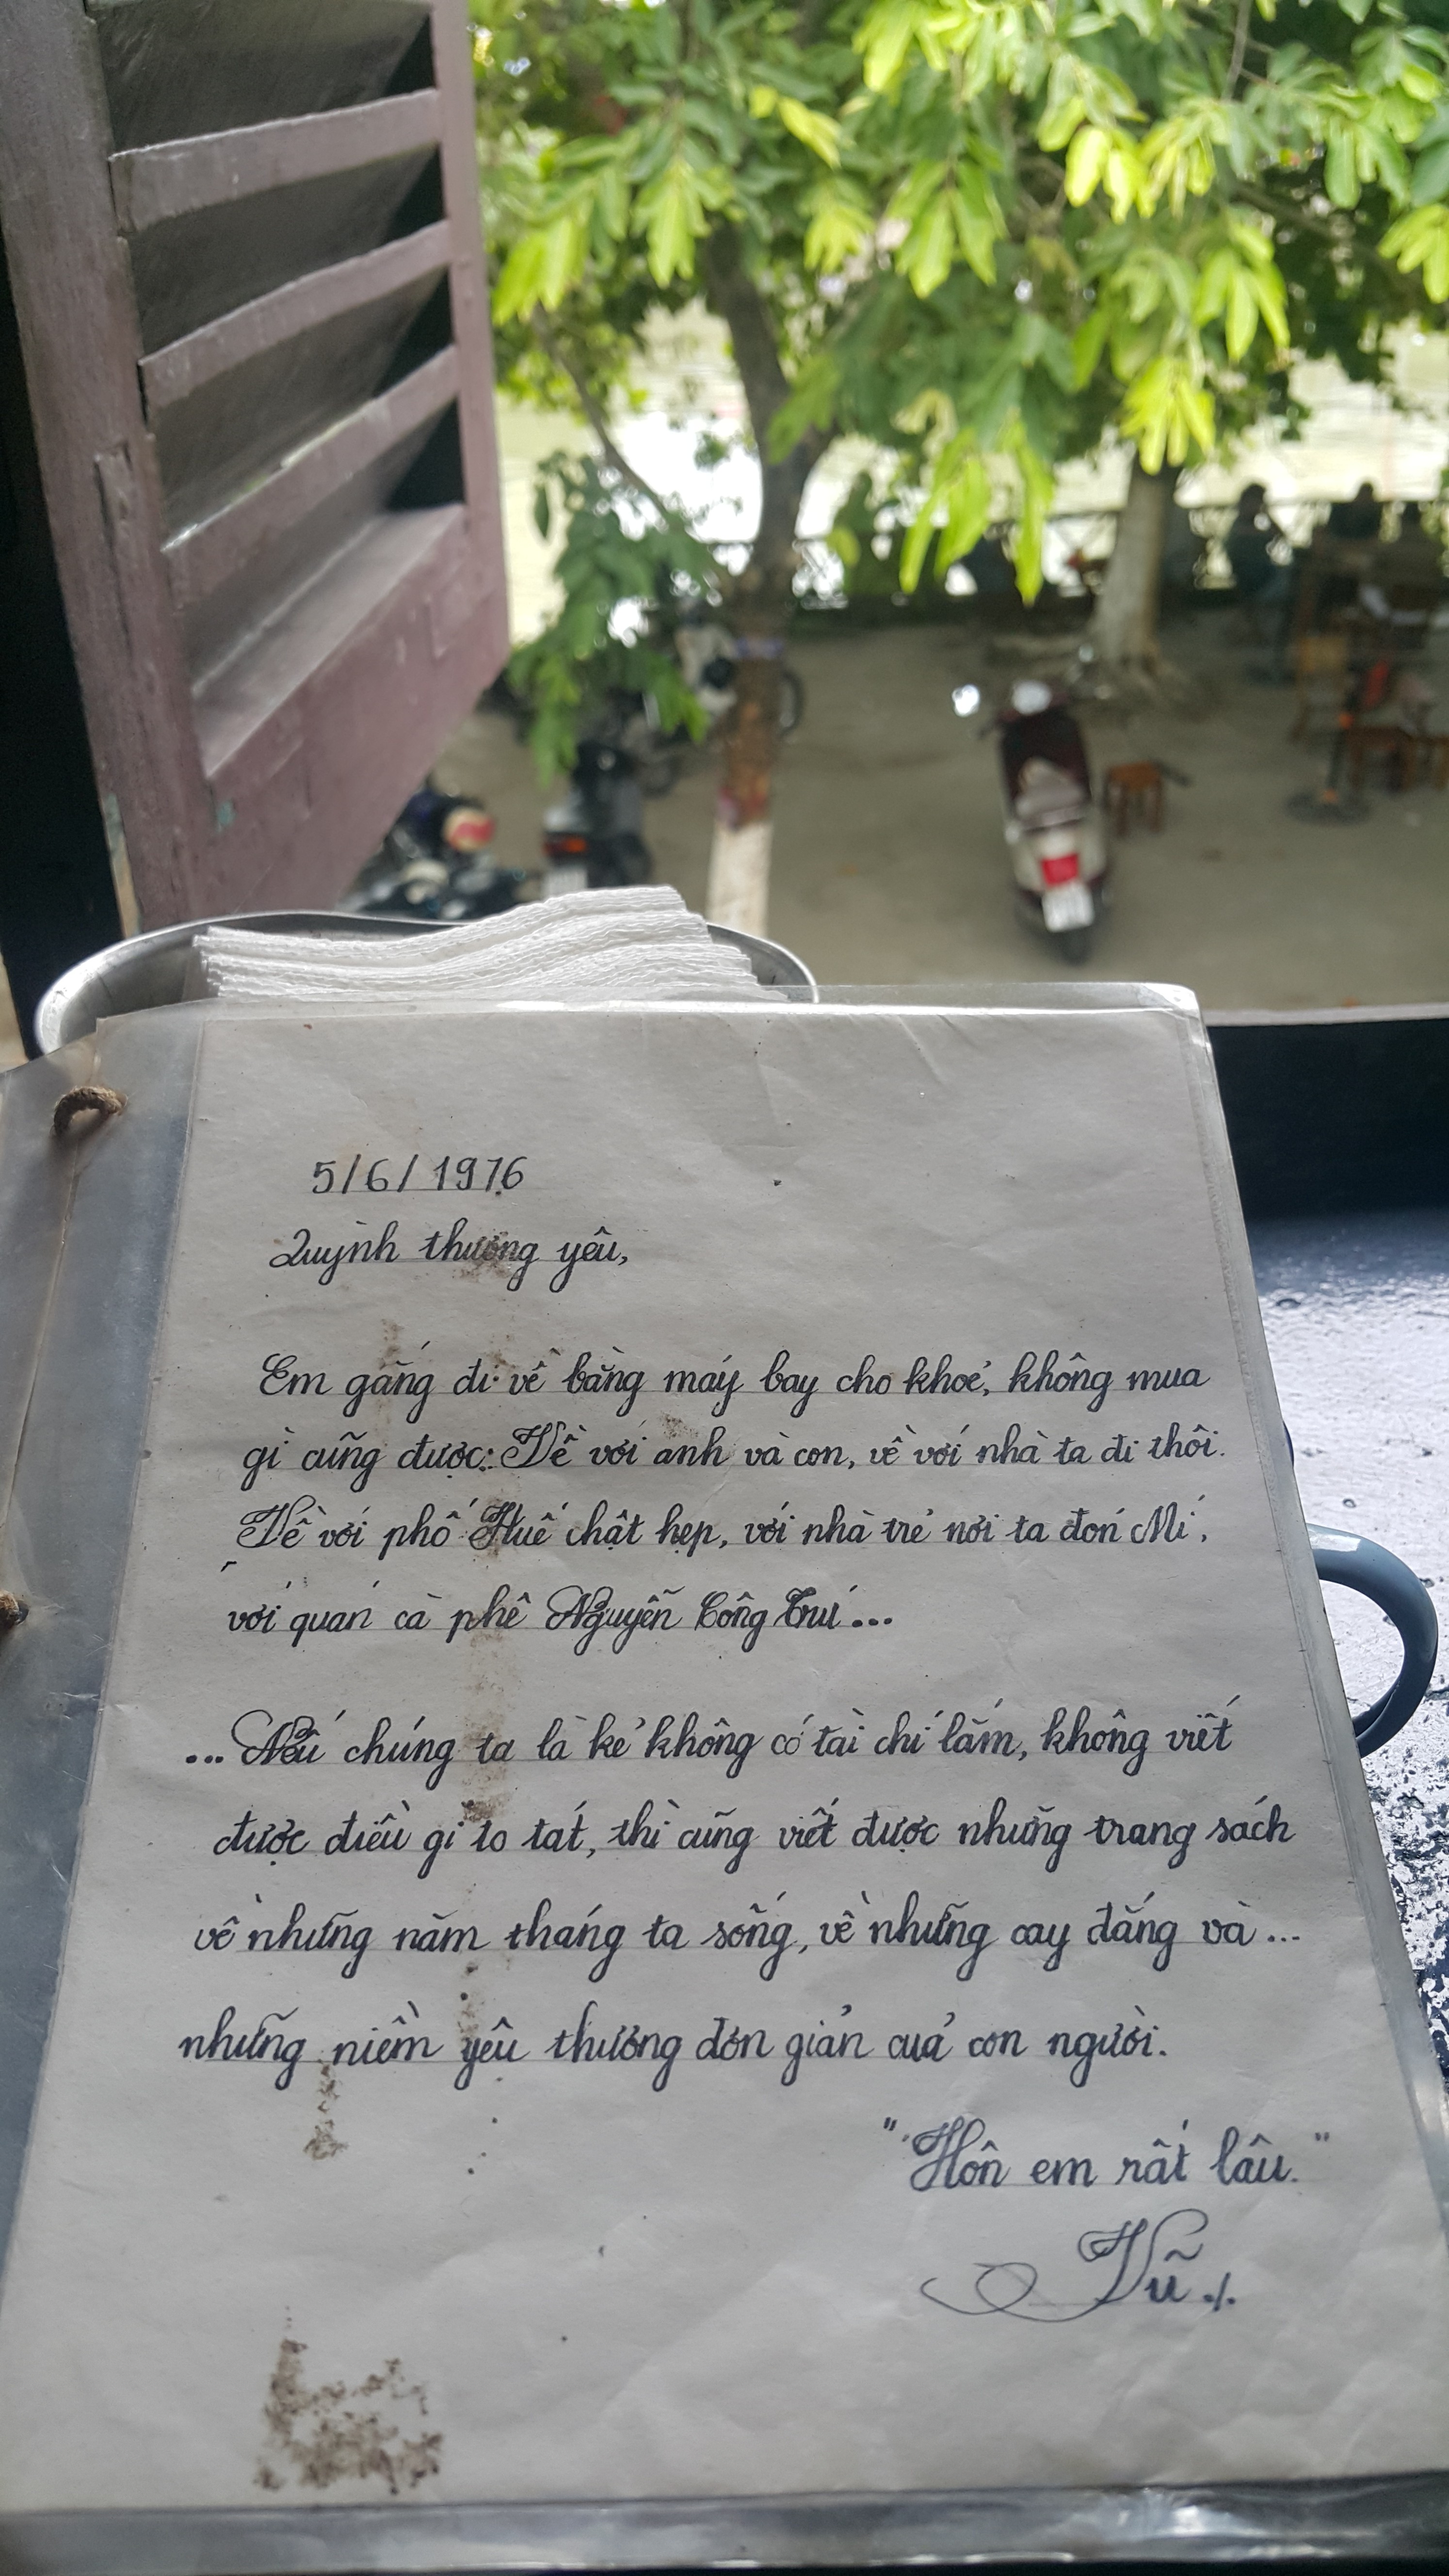 5/6/1976
Quỳnh thương yêu,
Em gắng đi về bằng máy bay cho khoẻ, không mua
gì cũng được. Về với anh và con, về với nhà ta đi thôi.
Về với phố Huế chật hẹp, với nhà trẻ nơi ta đón Mí,
với quán cà phê Nguyễn Công Trứ...
... Nếu chúng ta là kẻ không có tài chí lắm, không viết
được điều gì to tát, thì cũng viết được những trang sách
về những năm tháng ta sống, về những cay đắng và...
những niềm yêu thương đơn giản của con người.
"Hôn em rất lâu."
Vũ ./.